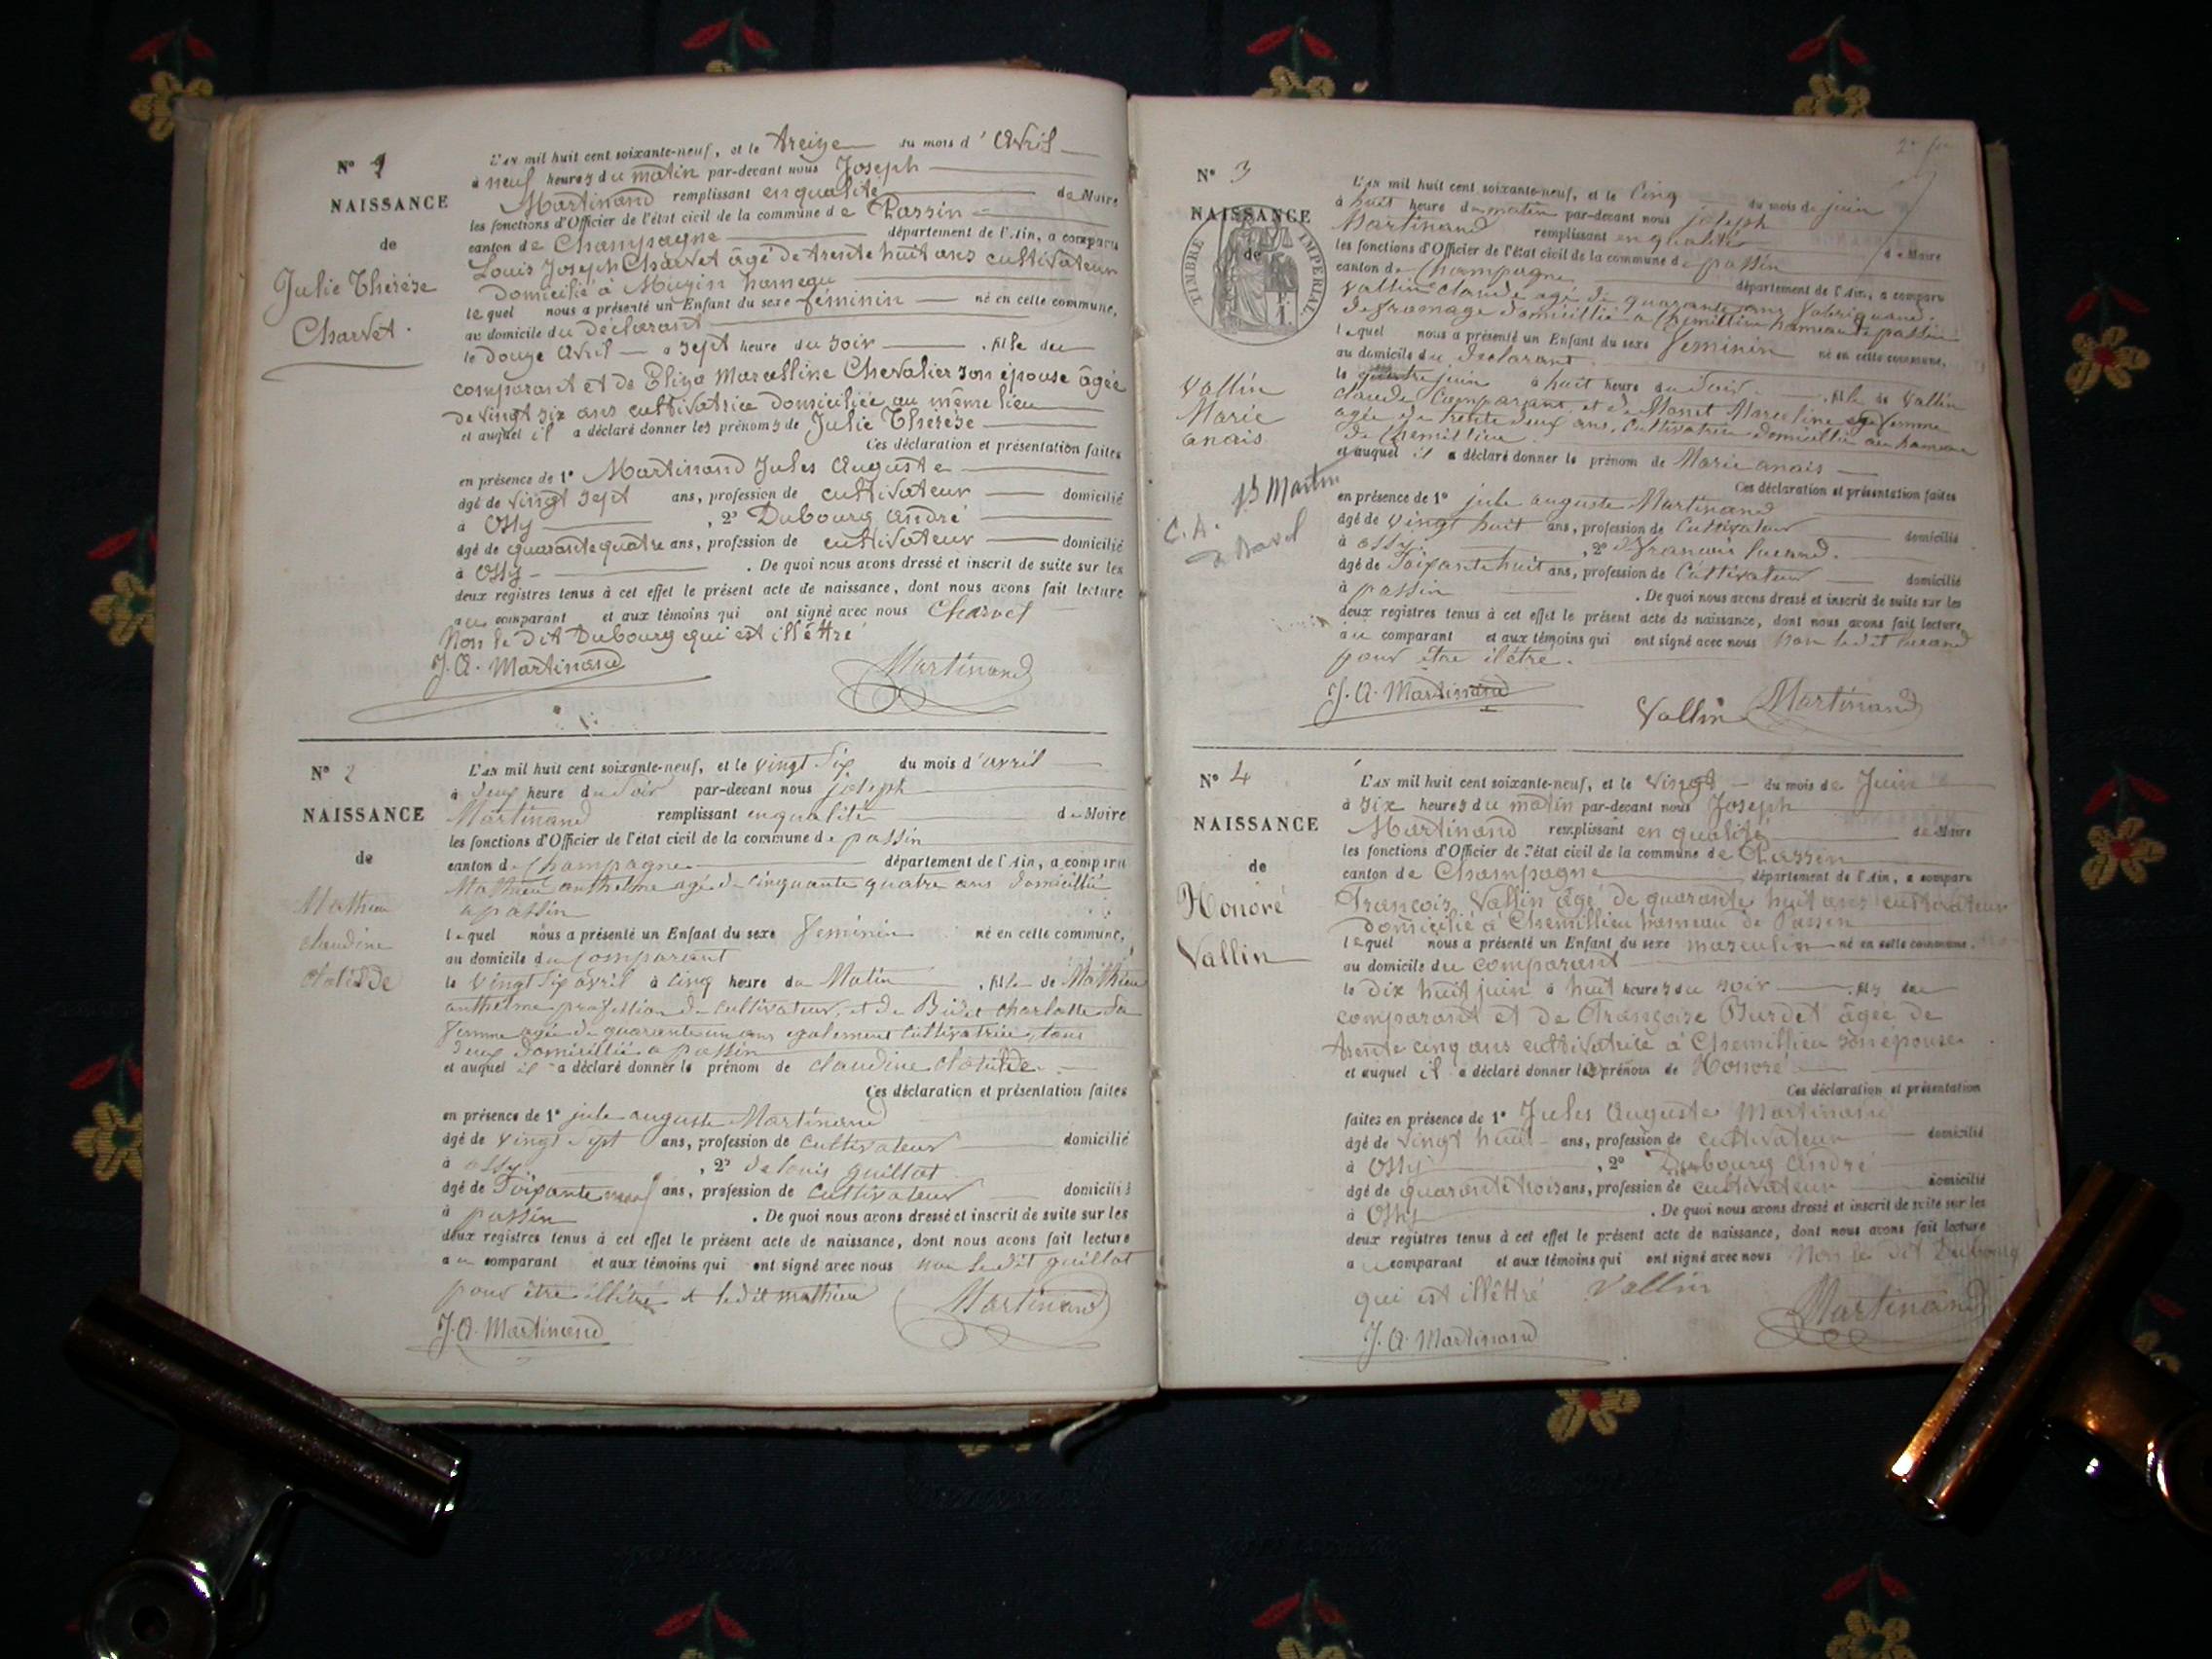 N° 1
NAISSANCE
de
Julie Thérèse
Charvet.
L'AN mil huit cent soixante-neuf, et le treize du mois d'Avril
à neuf heures du matin par-devant nous Joseph
Martinand remplissant en qualité de Maire
les fonctions d'Officier de l'état civil de la commune de Passin
canton de Champagne département de l'Ain, a comparu
Louis Joseph Charvet âgé de trente huit ans cultivateur
domicilié à Muzin hameau
lequel nous a présenté un Enfant du sexe féminin né en cette commune,
au domicile du déclarant
le douze Avril à sept heure du soir , fille du
comparant et de Eliza Marcelline Chevalier son épouse âgée
de vingt six ans cultivatrice domiciliée au même lieu
et auquel il a déclaré donner les prénoms de Julie Thérèse
Ces déclaration et présentation faites
en présence de 1° Martinand Jules Auguste
âgé de vingt sept ans, profession de cultivateur domicilié
à Ossy , 2° Dubourg André
âgé de quarante quatre ans, profession de cultivateur domicilié
à Ossy . De quoi nous avons dressé et inscrit de suite sur les
deux registres tenus à cet effet le présent acte de naissance, dont nous avons fait lecture
au comparant et aux témoins qui ont signé avec nous Charvet
Non le dit Dubourg qui est illéttré
J. A. Martinand Martinand
N° 2
NAISSANCE
de
Mathieu
claudine
clotilde
L'AN mil huit cent soixante-neuf, et le vingt six du mois d'avril
à deux heure du soir par-devant nous joseph
Martinand remplissant en qualité de Maire
les fonctions d'Officier de l'état civil de la commune de passin
canton de Champagne département de l'Ain, a comparu
Mathieu anthelme agé de cinquante quatre ans domicillié
a passin
lequel nous a présenté un Enfant du sexe feminin né en cette commune,
au domicile du comparant
le vingt six avril à cinq heure du Matin , fille de Mathieu
anthelme profession de cultivateur, et de Bidet charlotte sa
femme agée de quarante un ans egalement cultivatrice, tous
deux domicilliés a passin
et auquel il a déclaré donner le prénom de claudine clotilde
Ces déclaration et présentation faites
en présence de 1° jule auguste Martinand
âgé de vingt sept ans, profession de cultivateur domicilié
à ossy , 2° de louis guillot
âgé de soixante ans, profession de cultivateur domicilié
à passin . De quoi nous avons dressé et inscrit de suite sur les
deux registres tenus à cet effet le présent acte de naissance, dont nous avons fait lecture
au comparant et aux témoins qui ont signé avec nous non le dit guillot
pour être illétré et le dit mathieu
J. A. Martinand Martinand
N° 3
NAISSANCE
de
TIMBRE IMPERIAL
Vallin
Marie
anais
Martin
L'AN mil huit cent soixante-neuf, et le cinq du mois de juin
à huit heure du matin par-devant nous joseph
Martinand remplissant en qualité de Maire
les fonctions d'Officier de l'état civil de la commune de passin
canton de Champagne département de l'Ain, a comparu
Vallin claude agé de quarante ans fabriquand
de fromage domicillié a Chemillieu hameau de passin
lequel nous a présenté un Enfant du sexe feminin né en cette commune,
au domicile du declarant
le quatre juin à huit heure du soir , fille de Vallin
claude comparant et de Monet Marceline sa femme
agée de trente deux ans, cultivatrice domicilliée au hameau
de Chemillieu
et auquel il a déclaré donner le prénom de Marie anais
Ces déclaration et présentation faites
en présence de 1° jule auguste Martinand
âgé de vingt huit ans, profession de cultivateur domicilié
à ossy , 2° francois
âgé de soixante huit ans, profession de cultivateur domicilié
à passin . De quoi nous avons dressé et inscrit de suite sur les
deux registres tenus à cet effet le présent acte de naissance, dont nous avons fait lecture
au comparant et aux témoins qui ont signé avec nous non le dit
pour être ilétré.
J. A. Martinand Vallin Martinand
N° 4
NAISSANCE
de
Honoré
Vallin
L'AN mil huit cent soixante-neuf, et le vingt du mois de Juin
à six heures du matin par-devant nous Joseph
Martinand remplissant en qualité de Maire
les fonctions d'Officier de l'état civil de la commune de Passin
canton de Champagne département de l'Ain, a comparu
François Vallin âgé de quarante huit ans cultivateur
domicilié à Chemillieu hameau de Passin
lequel nous a présenté un Enfant du sexe masculin né en cette commune,
au domicile du comparant
le dix huit juin à huit heures du soir , fils du
comparant et de Françoise Burdet âgée de
trente cinq ans cultivatrice à Chemillieu son épouse
et auquel il a déclaré donner le prénom de Honoré
Ces déclaration et présentation
faites en présence de 1° Jules Auguste Martinand
âgé de vingt huit ans, profession de cultivateur domicilié
à Ossy , 2° Dubourg André
âgé de quarante trois ans, profession de cultivateur domicilié
à Ossy . De quoi nous avons dressé et inscrit de suite sur les
deux registres tenus à cet effet le présent acte de naissance, dont nous avons fait lecture
au comparant et aux témoins qui ont signé avec nous Non le dit Dubourg
qui est illéttré Vallin
J. A. Martinand Martinand